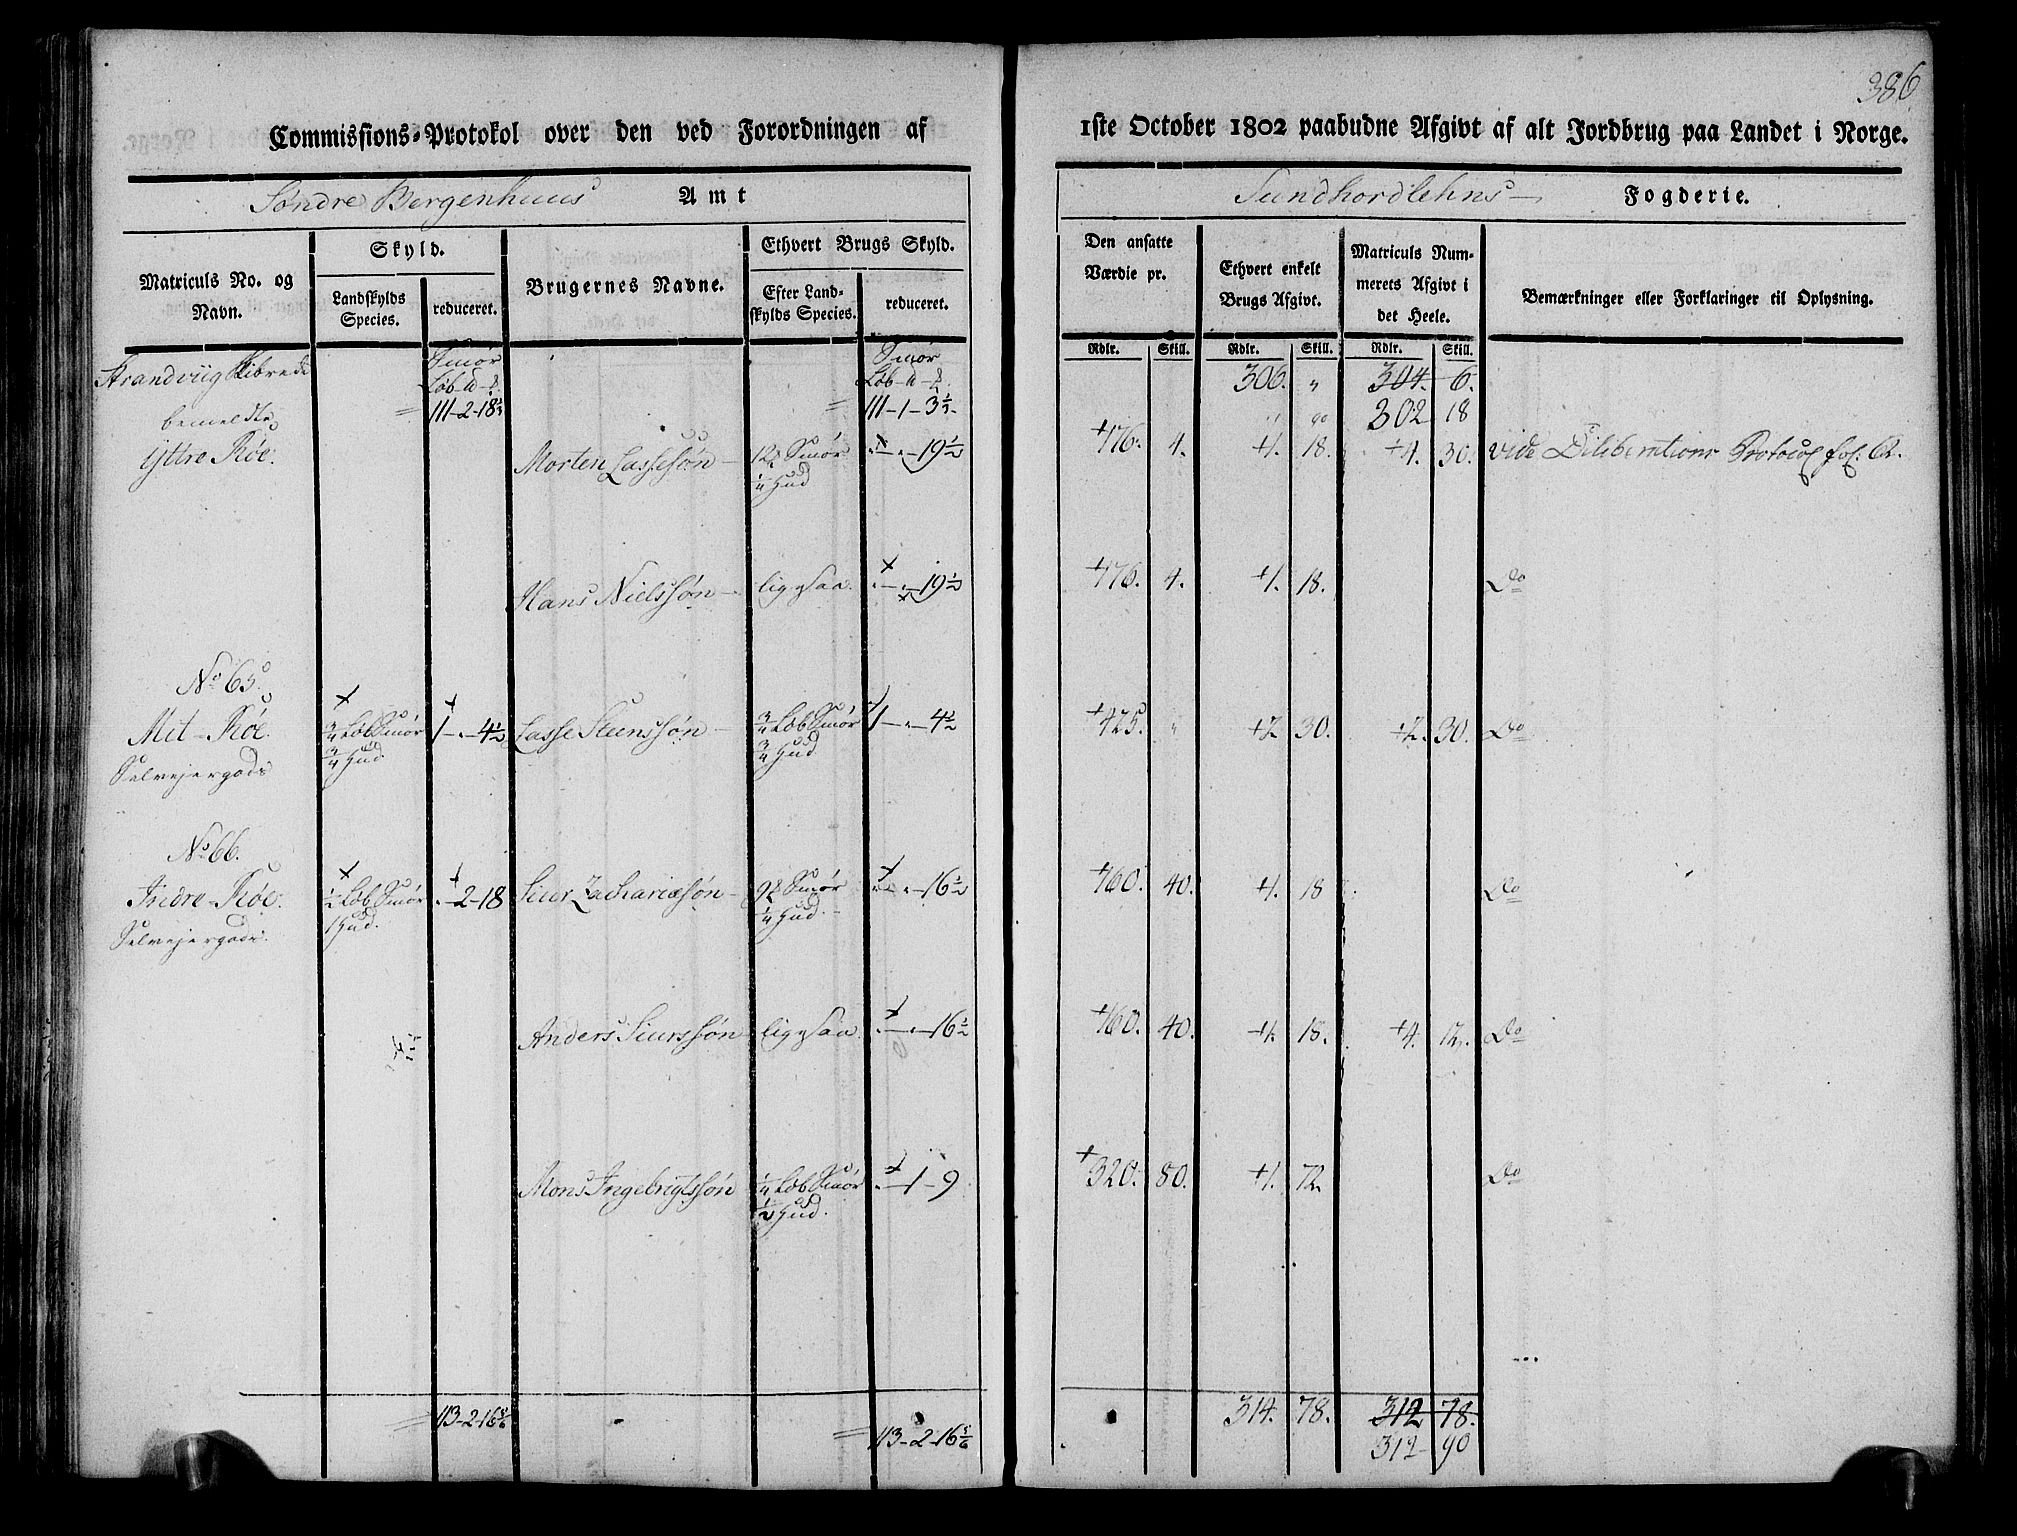 386
Commissions-Protokol over den ved Forordningen af 1ste October 1802 paabudne Afgivt af alt Jordbrug paa Landet i Norge.
Søndre Bergenhuus Amt
Sundhordlehns Fogderie.
Matriculs No. og Navn.
Skyld.
Landskylds Species.
reduceret.
Brugernes Navne.
Ethvert Brugs Skyld.
Efter Landskylds Species.
reduceret.
Den ansatte Værdie pr.
Ethvert enkelt Brugs Afgivt.
Matriculs Nummerets Afgivt i det Heele.
Bemærkninger eller Forklaringer til Oplysning.
Rdlr. Skill. Rdlr. Skill. Rdlr. Skill.
Strandviig Skibrede Smør Smør 306. „ 304. 6.
111-2-18½ 111-1-3½ 302 18
Yttre Røe. Morten Lassesøn 12 Smør „-„-19½ 176. 4. 1. 18. 4. 30. vide Deliberations Protocol fol.
¼ Hud
Hans Nielssøn ligesaa. „-„-19½ 176. 4. 1. 18. Do
No 65.
Mit-Røe. ¾ Løb Smør 1-„-4½ Lasse Steenssøn ¾ Løb Smør 1-„-4½ 425. „ 2 30. 2. 30. Do
Selvejergods ¾ Hud ¾ Hud
No 66.
Indre-Røe. ½ Løb Smør „-2-18 Siur Zachariæsøn 9 Smør „-„-16½ 160. 40. 1. 18 Do
Selvejergods. 1 Hud. ¼ Hud.
Anders Siurssøn ligesaa „-„-16½ 160. 40. 1. 18. 4. 12. Do
Mons Ingebrigtssøn ¼ Løb Smør „-1-9 320. 80. 1. 72 Do
½ Hud.
113-2-16⅚ 113-2-16⅚ 314. 78. 312 78.
312 90